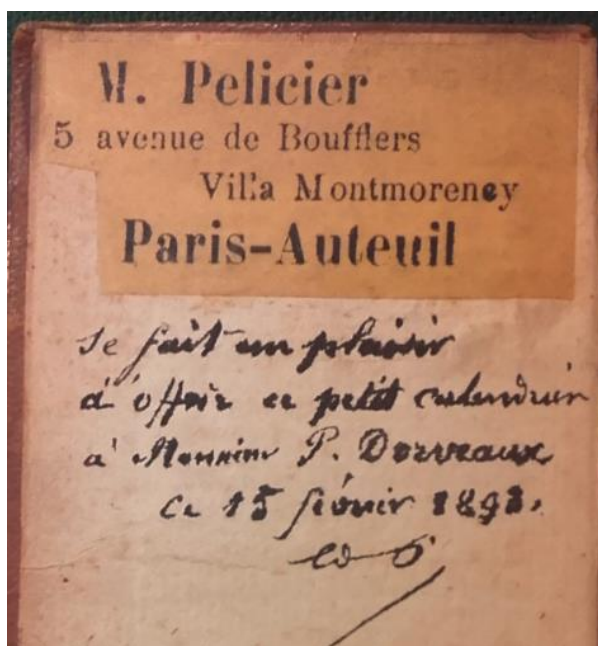 M. Pelicier
5 avenue de Boufflers
Villa Montmorency
Paris-Auteuil
se fait un plaisir
d'offrir ce petit calendrier
à Monsieur P. Dorveaux
Ce 15 février 1893.